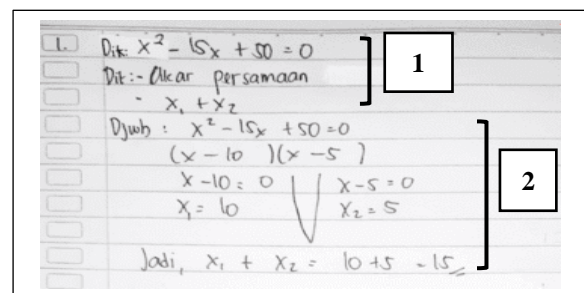 1. Dik: x² - 15x + 50 = 0
Dit: - Akar persamaan
- x₁ + x₂
Djwb : x² - 15x + 50 = 0
(x - 10 )(x - 5 )
x - 10 = 0 V x - 5 = 0
x₁ = 10 x₂ = 5
Jadi, x₁ + x₂ = 10 + 5 = 15
1
2